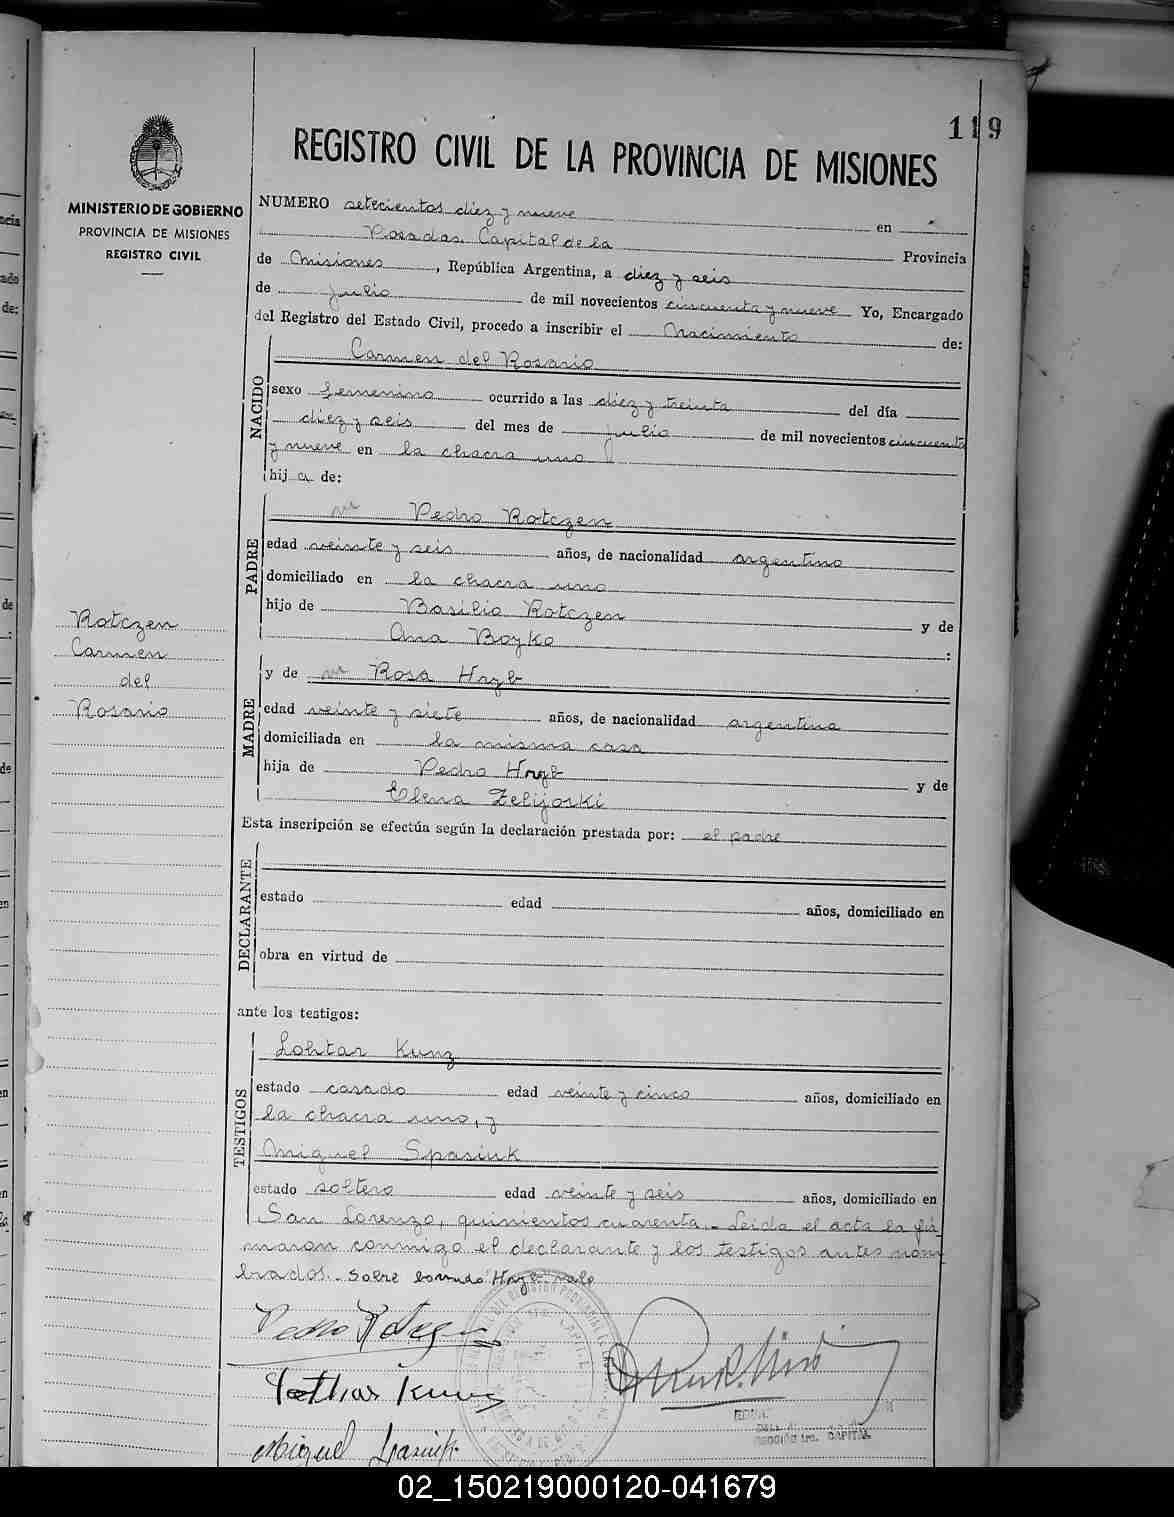 119
REGISTRO CIVIL DE LA PROVINCIA DE MISIONES
MINISTERIO DE GOBIERNO
PROVINCIA DE MISIONES
REGISTRO CIVIL
NUMERO setecientos diez y nueve en
Posadas Capital de la Provincia
de Misiones, República Argentina, a diez y seis
de julio de mil novecientos cincuenta y nueve Yo, Encargado
del Registro del Estado Civil, procedo a inscribir el Nacimiento de:
NACIDO
Carmen del Rosario
sexo femenino ocurrido a las diez y treinta del día
diez y seis del mes de julio de mil novecientos cincuenta
y nueve en la chacra uno
hij a de:
PADRE
Pedro Rotczen
edad veinte y seis años, de nacionalidad argentino
domiciliado en la chacra uno
hijo de Basilio Rotczen y de
Ana Boyko :
Rotczen
Carmen
del
Rosario
MADRE
y de Rosa Hryb
edad veinte y siete años, de nacionalidad argentina
domiciliada en la misma casa
hija de Pedro Hryb y de
Elena Zelijorki
Esta inscripción se efectúa según la declaración prestada por: el padre
DECLARANTE
estado edad años, domiciliado en
obra en virtud de
ante los testigos:
TESTIGOS
Lohtar Kunz
estado casado edad veinte y cinco años, domiciliado en
la chacra uno, y
Miguel Spasiuk
estado soltero edad veinte y seis años, domiciliado en
San Lorenzo, quinientos cuarenta.- Leida el acta la fir
maron conmigo el declarante y los testigos antes nom
brados.- Sobre borrado "Hryb" vale
Pedro Rotczen
Lothar Kunz
Miguel Spasiuk
CAPITAL
02_150219000120-041679